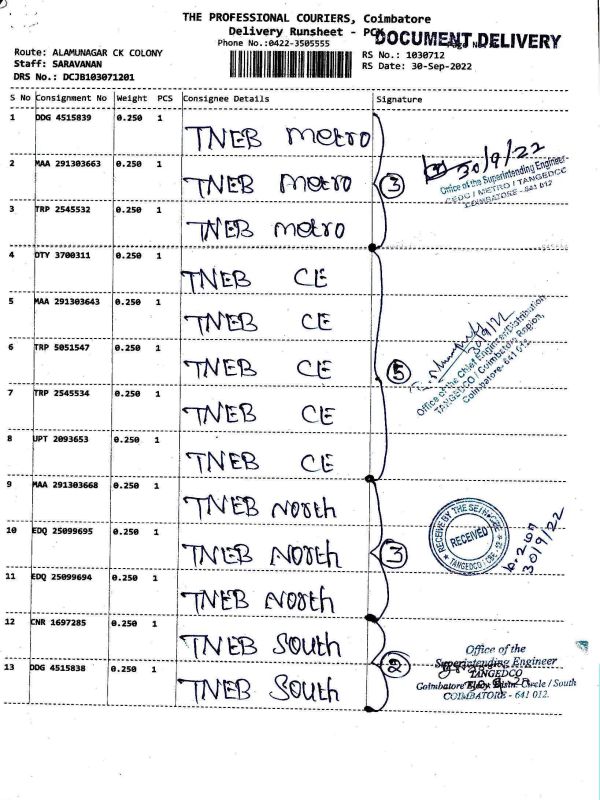 THE PROFESSIONAL COURIERS, Coimbatore
Delivery Runsheet - PCK
DOCUMENT DELIVERY
Phone No.:0422-3505555
Route: ALAMUNAGAR CK COLONY
Staff: SARAVANAN
DRS No.: DCJB103071201
RS No.: 1030712
RS Date: 30-Sep-2022
S No Consignment No Weight PCS Consignee Details Signature
1 DDG 4515839 0.250 1 TNEB Metro
2 MAA 291303663 0.250 1 TNEB Metro
3 TRP 2545532 0.250 1 TNEB Metro
3
30/9/22
Office of the Superintending Engineer
CEDC / METRO / TANGEDCO
COIMBATORE - 641 012
4 DTY 3700311 0.250 1 TNEB CE
5 MAA 291303643 0.250 1 TNEB CE
6 TRP 5051547 0.250 1 TNEB CE
7 TRP 2545534 0.250 1 TNEB CE
8 UPT 2093653 0.250 1 TNEB CE
5
30/9/22
Office of the Chief Engineer/Distribution
TANGEDCO / Coimbatore Region,
Coimbatore- 641 012.
9 MAA 291303668 0.250 1 TNEB North
10 EDQ 25099695 0.250 1 TNEB North
11 EDQ 25099694 0.250 1 TNEB North
3
RECEIVED
30/9/22
12 CNR 1697285 0.250 1 TNEB South
13 DDG 4515838 0.250 1 TNEB South
2
Office of the
Superintending Engineer
TANGEDCO
Coimbatore Elecy. Distn. Circle / South
COIMBATORE - 641 012.